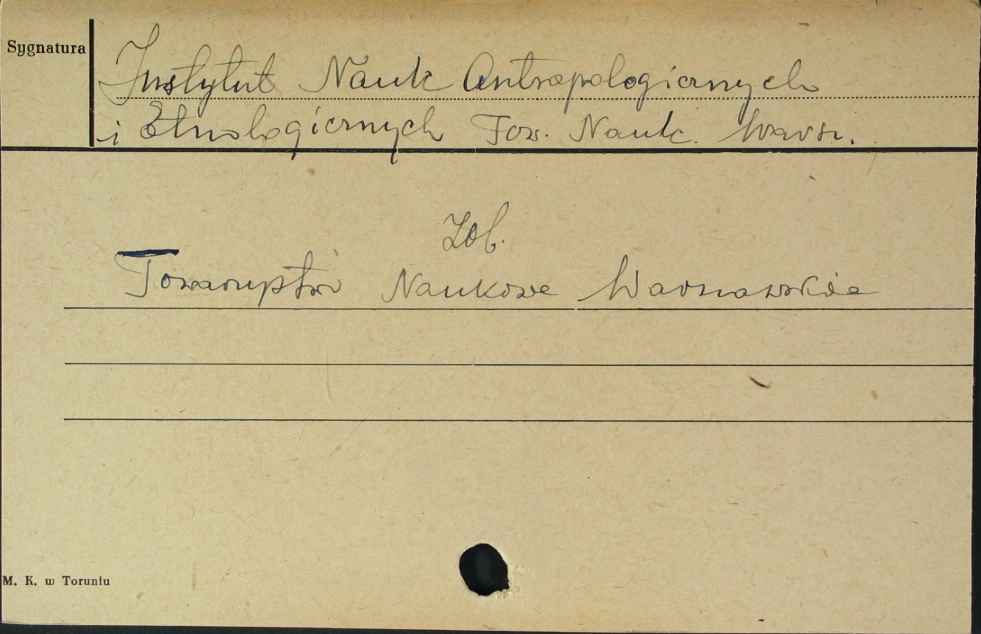 Sygnatura
Instytut Nauk Antropologicznych
i Etnologicznych Tow. Nauk. Warsz.
Zob.
Towarzystwo Naukowe Warszawskie
M. K. w Toruniu